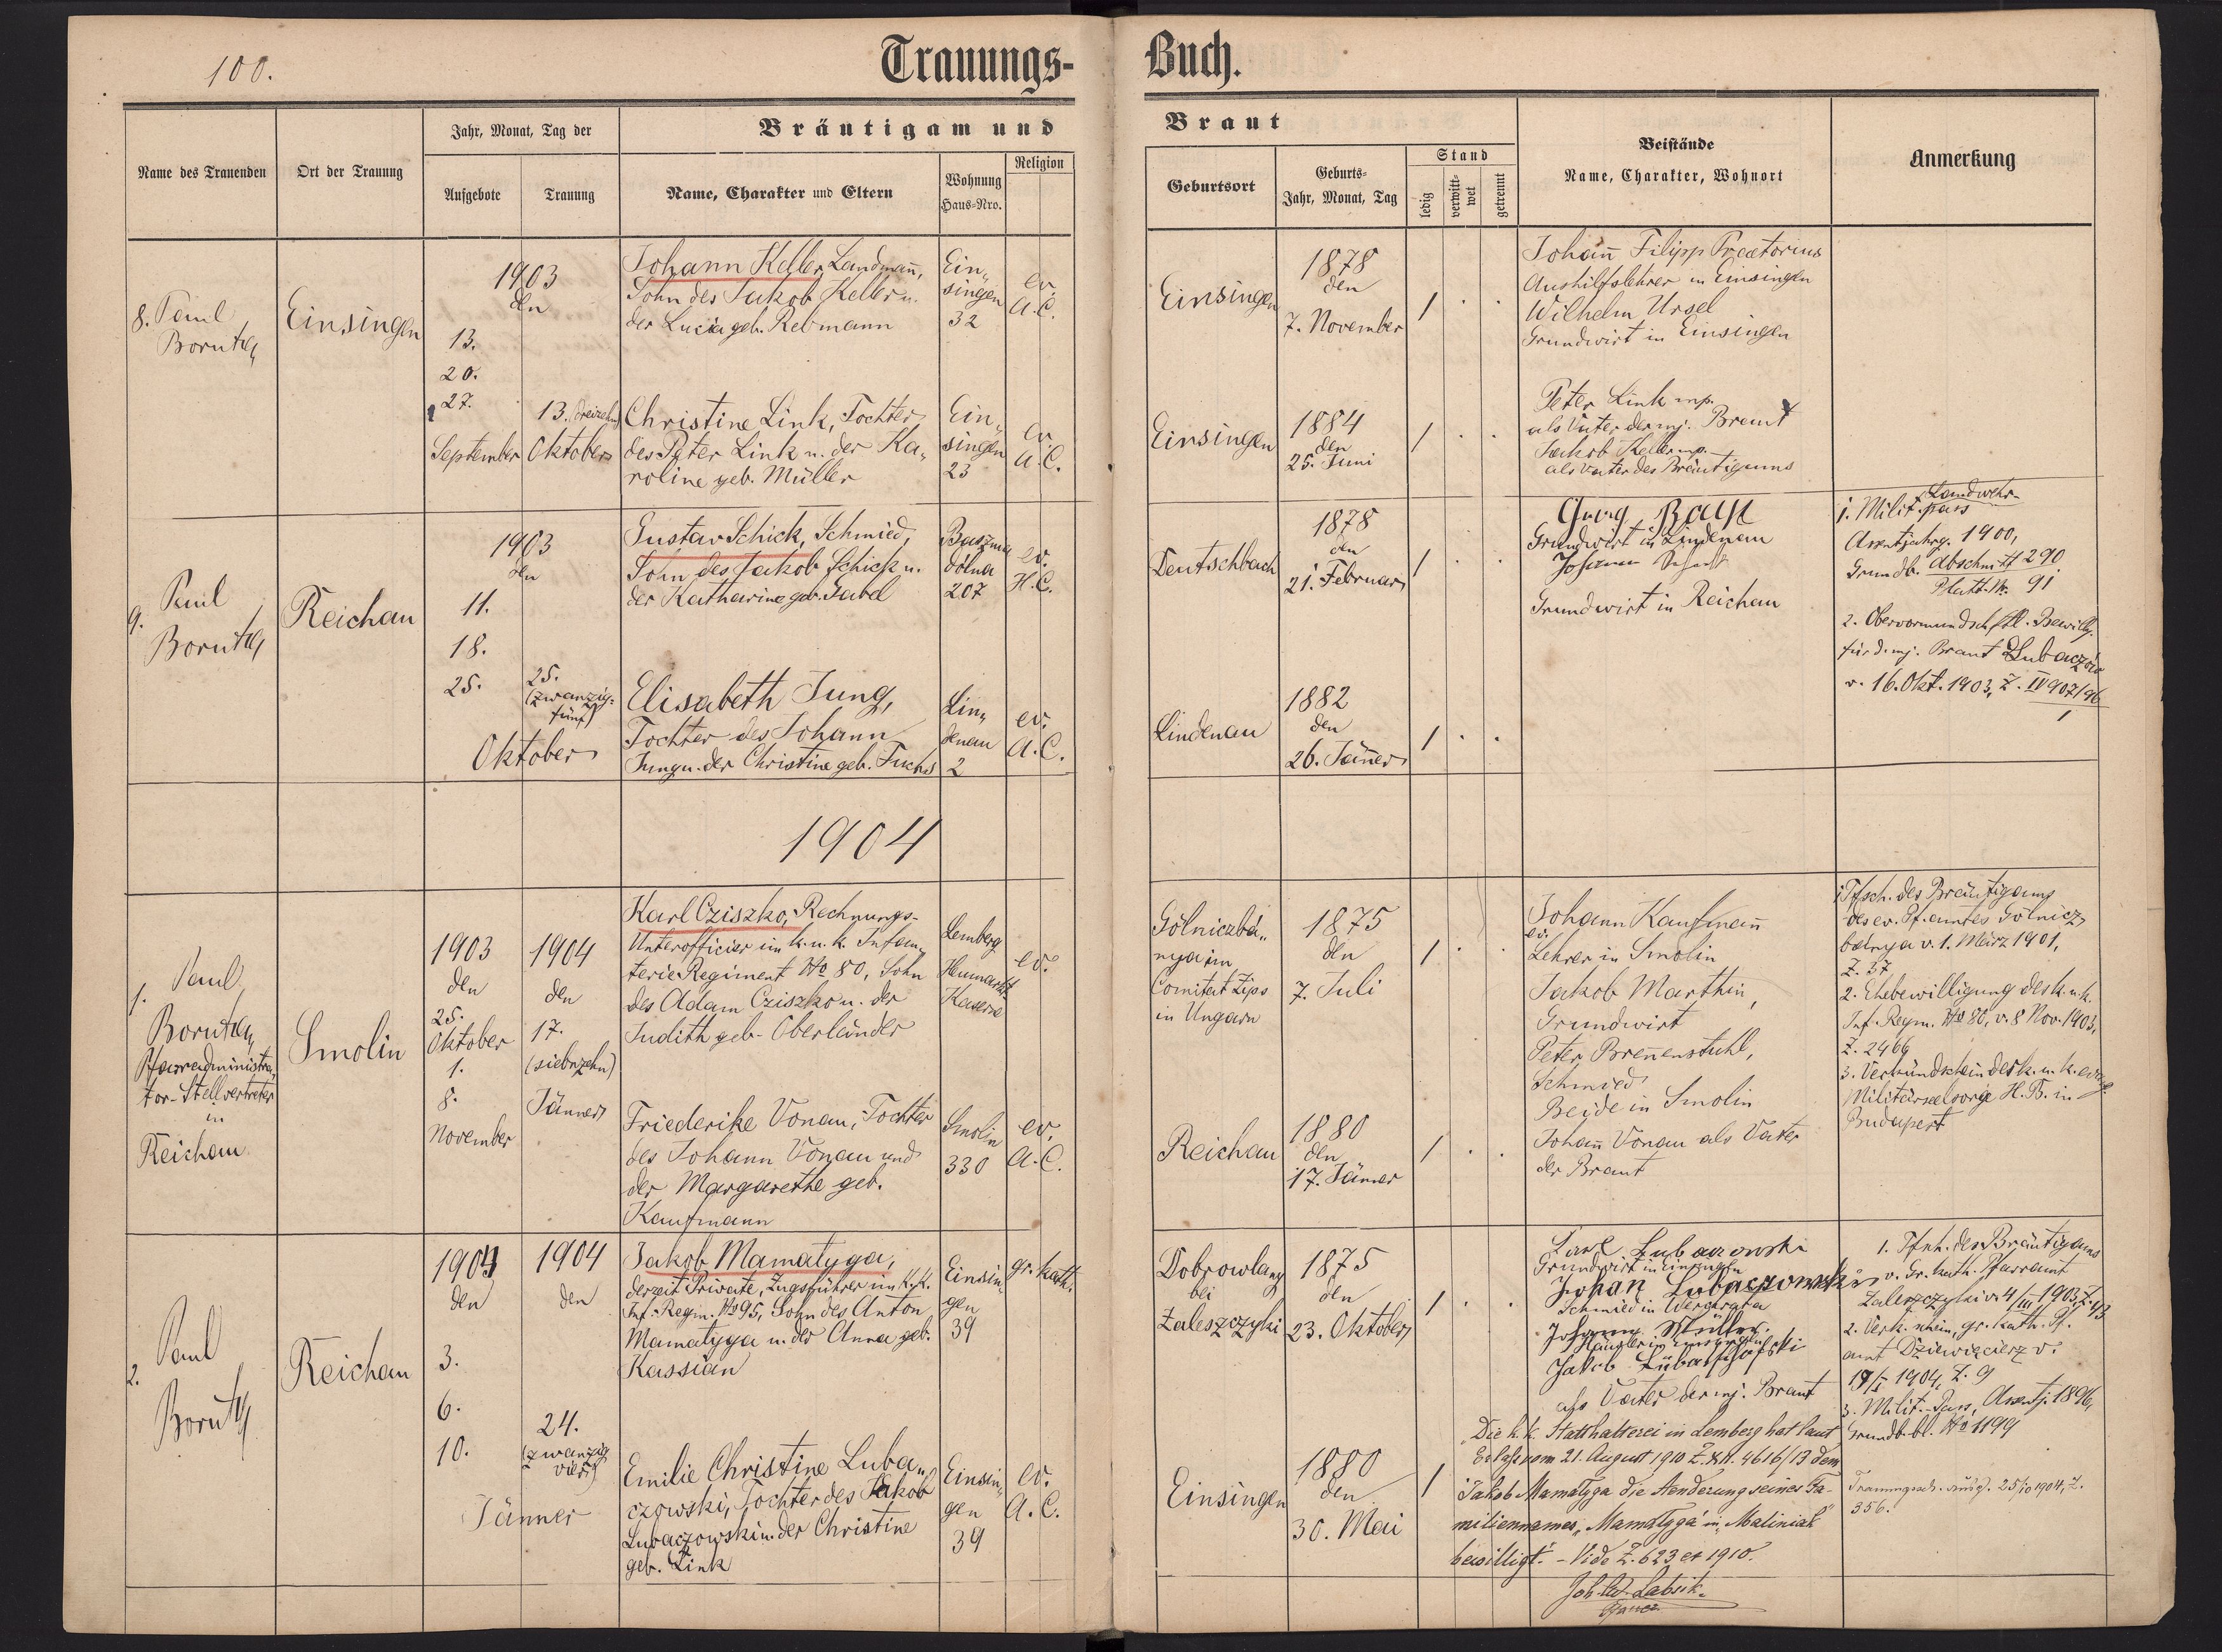 100.
Trauungs-Buch.
Name des Trauenden
Ort der Trauung
Jahr, Monat, Tag der
Aufgebote
Trauung
Bräutigam und Braut
Name, Charakter und Eltern
Wohnung
Haus-Nro.
Religion
Geburtsort
Geburts-
Jahr, Monat, Tag
Stand
ledig
verwitt-
wet
getrennt
Beistände
Name, Charakter, Wohnort
Anmerkung
8. Paul
Borutha
Einsingen
1903
den
13.
20.
27.
September
13. (dreizehn)
Oktober
Johann Keller, Landmann,
Sohn des Jakob Keller u.
der Lucia geb. Rebmann
Ein„
singen
32
ev.
A.C.
Einsingen
1878
den
7. November
1
Johann Filipp Praetorius
Aushilfslehrer in Einsingen
Wilhelm Ursel
Grundwirt in Einsingen
Christine Link, Tochter
des Peter Link u. der Ka„
roline geb. Müller
Ein„
singen
23
ev.
A.C.
Einsingen
1884
den
25. Juni
1
Peter Link mp.
als Vater der mj. Braut
Jakob Keller mp.
als Vater des Bräutigams
9. Paul
Borutha
Reichau
1903
den
11.
18.
25.
25.
(zwanzig-
fünf)
Oktober
Gustav Schick, Schmied,
Sohn des Jakob Schick u.
der Katharina geb. Gabel
Basznia
dolna
207
ev.
H.C.
Deutschbach
1878
den
21. Februar
1
Georg
Grundwirt in Lindenau
Johann
Grundwirt in Reichau
1. Milit. Landwehr-
pass
Assentjahrg. 1900,
Grundb. Abschnitt 290
Blatt-Nr. 91
2. Obervormundschftl. Bewillg.
für d. mj. Braut Lubaczów
v. 16. Okt. 1903, Z. IV 907/96
1
Elisabeth Jung,
Tochter des Johann
Jung u. der Christine geb. Fuchs
Lin„
denau
2
ev.
A.C.
Lindenau
1882
den
26. Jänner
1
1904
1. Paul
Borutha,
Pfarradministra„
tor-Stellvertreter
in
Reichau
Smolin
1903
den
25.
Oktober
1.
8.
November
1904
den
17.
(siebzehn)
Jänner
Karl Cziszko, Rechnungs-
Unterofficier im k. u. k. Infan„
terie Regiment No 80, Sohn
des Adam Cziszko u. der
Judith geb. Oberländer
Lemberg
Heumarkt-
Kaserne
ev.
Gölniczbá„
nya im
Comitat Zips
in Ungarn
1875
den
7. Juli
1
Johann Kaufmann
ev.
Lehrer in Smolin
Jakob Marthin,
Grundwirt
Peter Brennenstuhl,
Schmied
Beide in Smolin
Johann Vonau als Vater
der Braut
1. Tfsch. des Bräutigams
des ev. Pf. amtes Gölnicz„
bánya v. 1. März 1901,
Z. 37
2. Ehebewilligung des k. u. k.
Inf. Regm. No 80, v. 8 Nov. 1903,
Z. 2466
3. Verkündschein des k. u. k. evang.
Militärseelsorge H. B. in
Budapest
Friederike Vonau, Tochter
des Johann Vonau und
der Margarethe geb.
Kaufmann
Smolin
330
ev.
A.C.
Reichau
1880
den
17. Jänner
1
2. Paul
Borutha
Reichau
1904
den
3.
6.
10.
1904
den
24.
(zwanzig
vier)
Jänner
Jakob Mamatyga,
derzeit Private, Zugsführer im k. u. k.
Inf. Regim. No 95, Sohn des Anton
Mamatyga u. der Anna geb.
Kassian
Einsin„
gen
39
gr. kath.
Dobrowlany
bei
Zaleszczyki
1875
den
23. Oktober
1
Lubaczowski
Grundwirt in Einsingen
Johan Lubaczowski
Schmied in Werchrata
Johann Müller
Jakob
als Vater der mj. Braut
1. Tfsch. des Bräutigams
v. Gr. kath. Pfarramt
Zaleszczyki v. 4/III 1903, Z. 43
2. Verk. schein, gr. kath. Pf.
amt Dziewięcierz v.
19/I 1904, Z. 9
3. Milit. Pass, Assentj. 1896,
Grundb. bl. No 1199
Emilie Christine Luba„
czowski, Tochter des Jakob
Lubaczowski u. der Christine
geb. Link
Einsin„
gen
39
ev.
A.C.
Einsingen
1880
den
30. Mai
1
Die k. k. Statthalterei in Lemberg hat laut
Erlass vom 21. August 1910 Z. XII. 4616/13 dem
Jakob Mamatyga die Aenderung seines Fa-
miliennamens „Mamatyga" in „Maliniak"
bewilligt. - Vide Z. 623 ex 1910.
Pfarrer
Trauungssch. ausg. 25/10 1904, Z.
356.